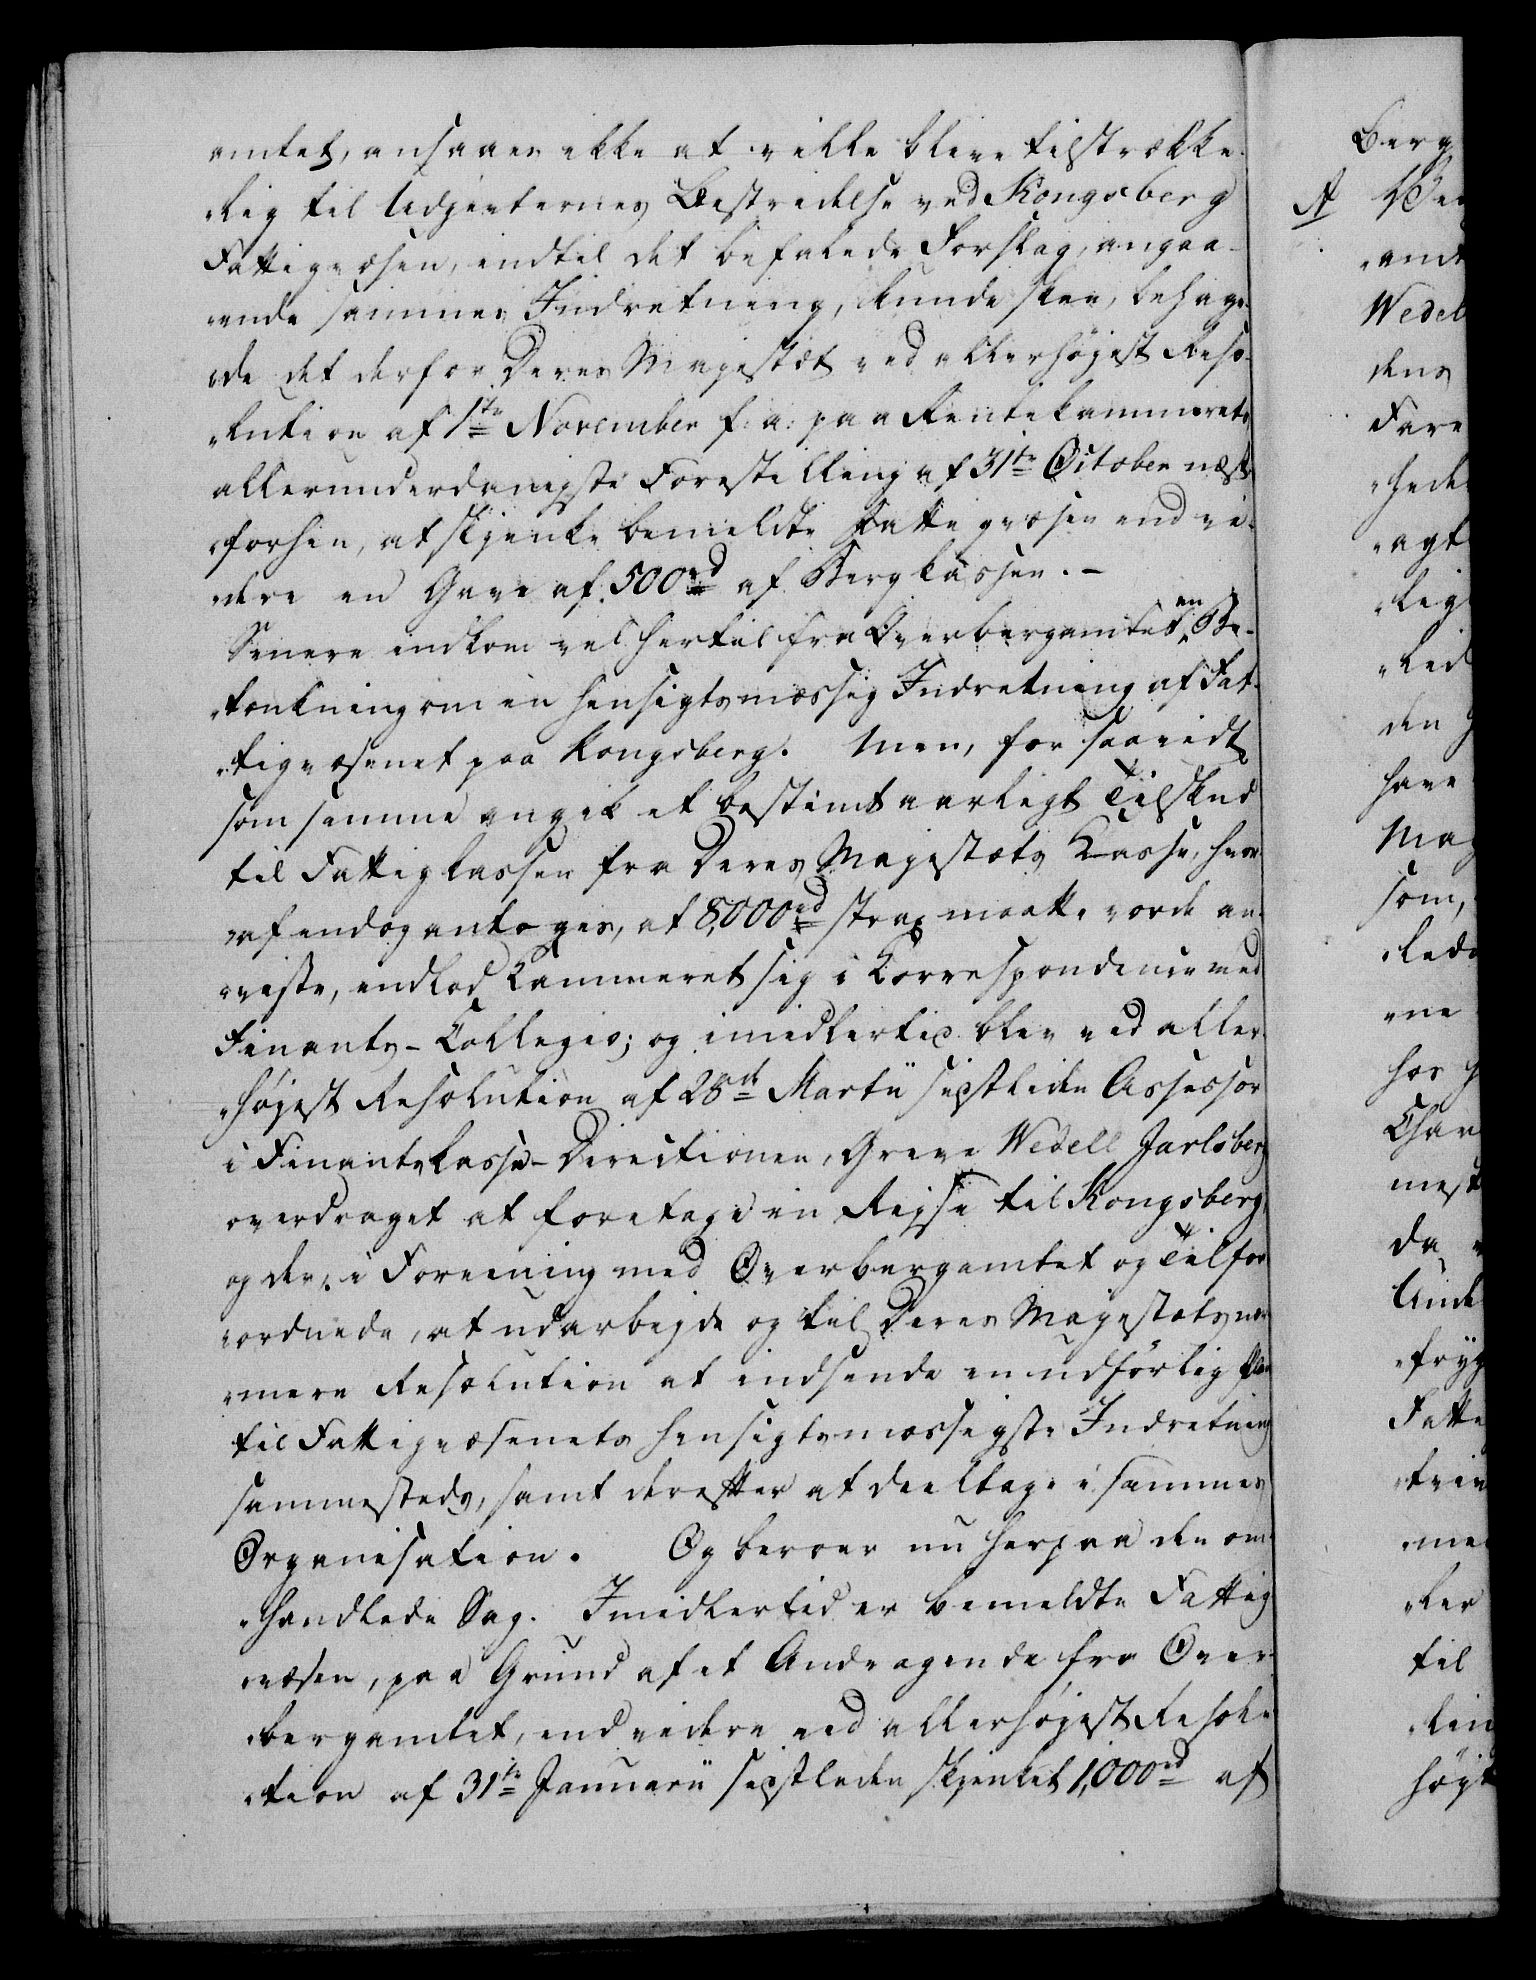 amtet, ansaaes ikke at ville blive tilstrække-
„lig til Udgivternes Bestridelse ved Kongsberg
Fattigvæsen, indtil det befalede Forslag, angaa-
„ende sammes Indretning, kunde skee, behage-
„de det derfor Deres Majestæt ved allerhøjest Reso-
„lution af 1te November f: a: paa Rentekammerets
allerunderdanigste Forestilling af 31te October næst
„forhen, at skjenke bemeldte Fattigvæsen end vi-
„dere en Gave af 500rd af Bergkassen. –
Senere indkom vel hertil fra Overbergamtet en Be-
„tænkning om en hensigtsmæssig Indretning af Fat-
„tigvæsenet paa Kongsberg. Men, for saavidt
som samme angik et bestemt aarligt Tilskud
til Fattigkassen fra Deres Majestæts Kasse, hvor-
„af endog antoges, at 8,000rd strax maatte vorde an-
„viste, indlod Kammeret sig i Correspondence med
Finants-Collegio; og imidlertid blev ved aller-
„højest Resolution af 28de Martii sidstleden Assessor
i Finantskasse-Directionen, Greve Wedell Jarlsberg
overdraget at foretage en Rejse til Kongsberg,
og der, i Forening med Overbergamtet og Tilfor-
„ordnede, at udarbejde og til Deres Majestæts nær-
„mere Resolution at indsende en udførlig Plan
til Fattigvæsenets hensigtsmæssigste Indretning
sammesteds, samt derefter at deeltage i sammes
Organisation. Og beroer nu herpaa den om-
„handlede Sag. Imidlertid er bemeldte Fattig-
„væsen, paa Grund af et Andragende fra Over-
„bergamtet, end videre ved allerhøjest Resolu-
„tion af 31te Januarii sidstleden skjenket 1,000rd af
Berg
A
„amt
Wedel
dens
Fare
„hede
„agt
„lig
„led
den
have
Maj
som,
„lede
„ne
hos
Char
mest
da
Unde
„fryg
Fatte
„trin
„me
„ler
til
„lin
høj